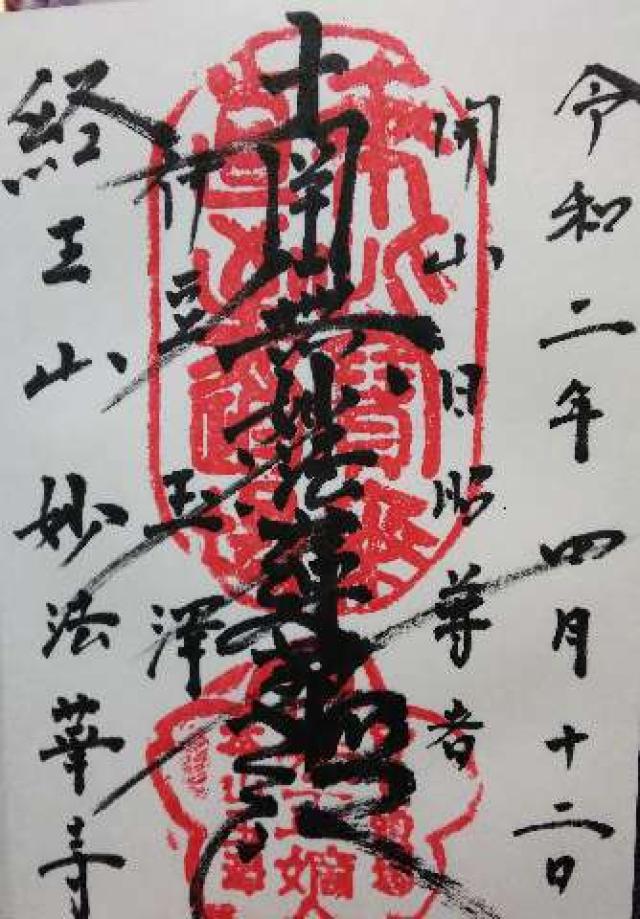 令和二年四月十二日
開山日昭尊者
南無妙法蓮華経
伊豆玉澤
経王山妙法華寺